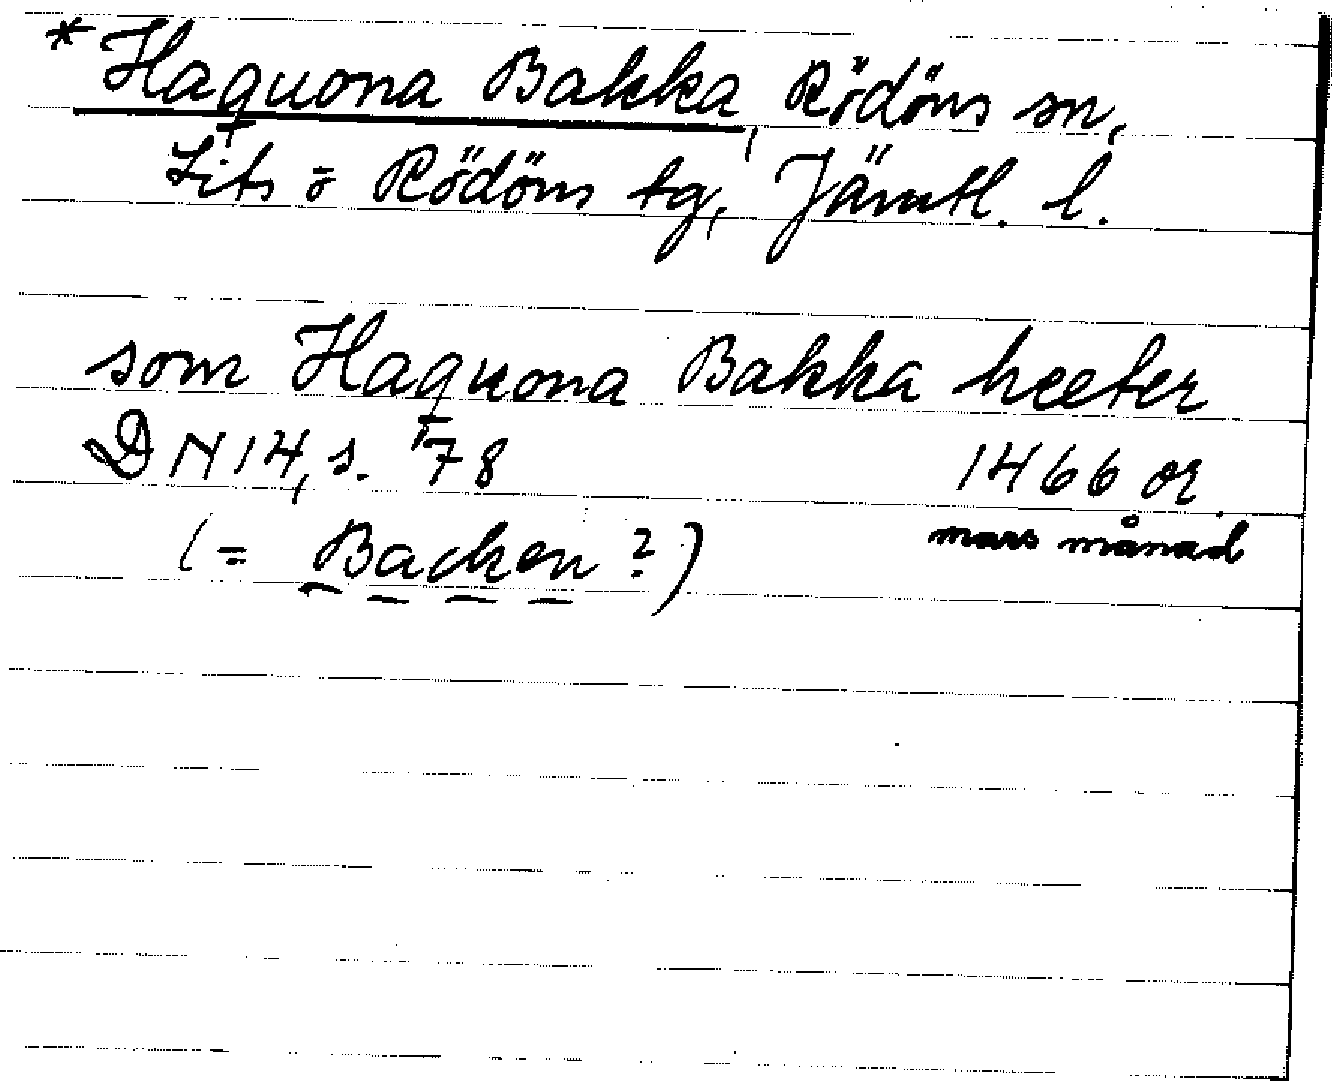 *Haquona Bakka, Rödöns sn,
Lits o Rödöns tg, Jämtl. l.
som Haquona Bakka heeter
DN 14, s. 78 1466 or.
mars månad
(= Backen?)